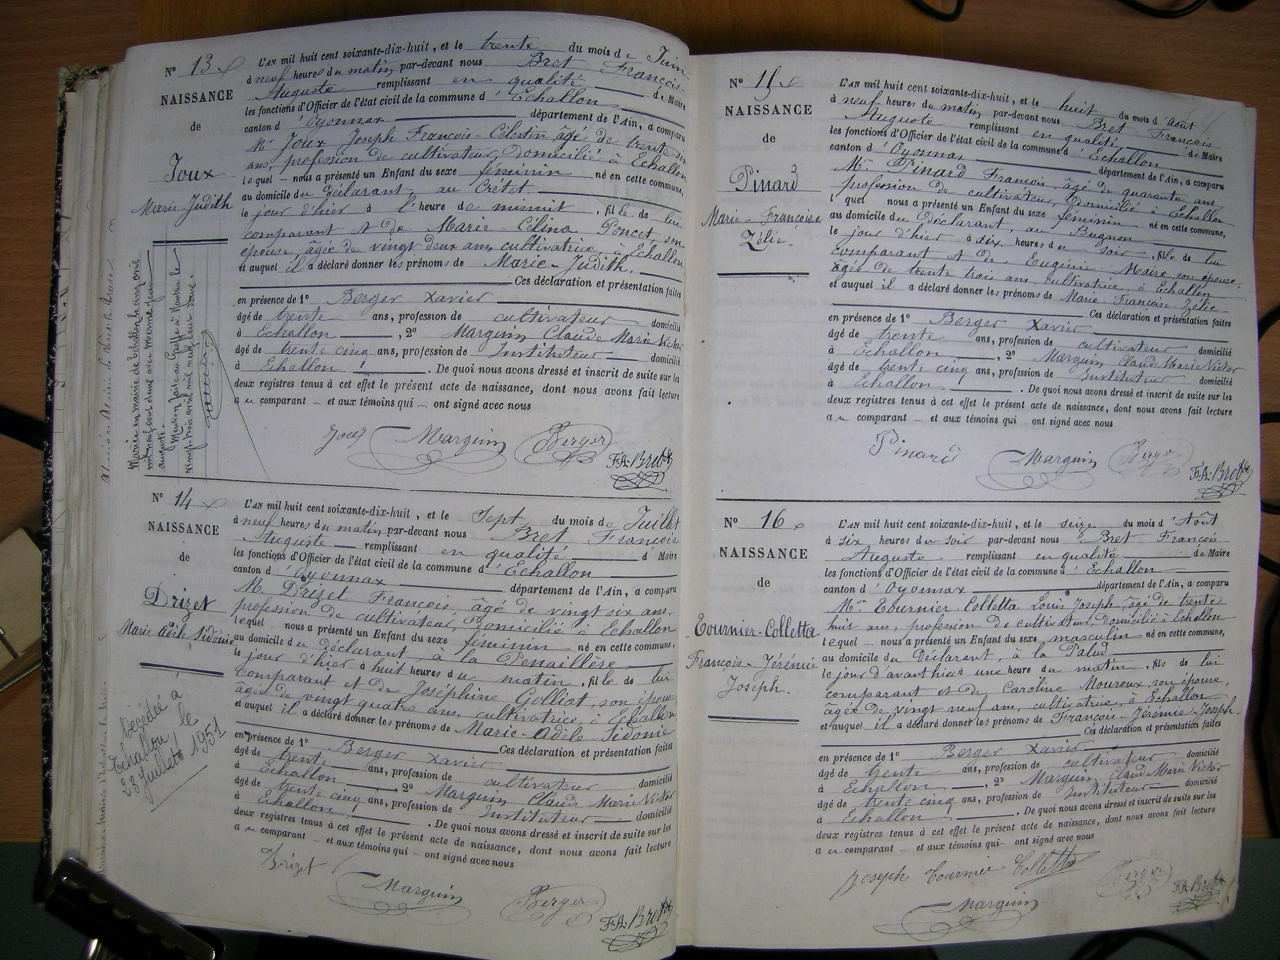 Nº 13
NAISSANCE
de
Joux
Marie Judith
L'AN mil huit cent soixante-dix-huit, et le trente du mois de Juin
à neuf heures du matin, par-devant nous Bret François
Auguste remplissant en qualité de Maire
les fonctions d'Officier de l'état civil de la commune d'Echallon
canton d'Oyonnax département de l'Ain, a comparu
Mr Joux Joseph François-Célestin âgé de trente six
ans, profession de cultivateur, domicilié à Echallon
lequel nous a présenté un Enfant du sexe féminin né en cette commune,
au domicile du Déclarant, au Crétet
le jour d'hier à l'heure de minuit, fille de lui
comparant et de Marie-Célina Poncet, son
épouse, âgée de vingt deux ans, cultivatrice, à Echallon
et auquel il a déclaré donner les prénoms de Marie-Judith.
Ces déclaration et présentation faites
en présence de 1º Berger Xavier
âgé de trente ans, profession de cultivateur domicilié
à Echallon, 2º Marquin Claude Marie Victor
âgé de trente cinq ans, profession de Instituteur domicilié
à Echallon. De quoi nous avons dressé et inscrit de suite sur les
deux registres tenus à cet effet le présent acte de naissance, dont nous avons fait lecture
au comparant et aux témoins qui ont signé avec nous
Joux Marquin Berger FA: Bret
Nº 14
NAISSANCE
de
Drizet
Marie Adèle Sidonie
Décédée à
Echallon le
23 Juillet 1951
L'AN mil huit cent soixante-dix-huit, et le Sept du mois de Juillet
à neuf heures du matin, par-devant nous Bret François
Auguste remplissant en qualité d' Maire
les fonctions d'Officier de l'état civil de la commune d'Echallon
canton d'Oyonnax département de l'Ain, a comparu
M. Drizet François, âgé de vingt six ans,
profession de cultivateur, domicilié à Echallon
lequel nous a présenté un Enfant du sexe féminin né en cette commune,
au domicile du Déclarant, à la Penaillère
le jour d'hier à huit heures du matin, fille de lui
comparant et de Joséphine Golliot, son épouse
âgée de vingt quatre ans, cultivatrice, à Echallon
et auquel il a déclaré donner les prénoms de Marie-Adèle Sidonie
Ces déclaration et présentation faites
en présence de 1º Berger Xavier
âgé de trente ans, profession de cultivateur domicilié
à Echallon, 2º Marquin Claude Marie Victor
âgé de trente cinq ans, profession de Instituteur domicilié
à Echallon. De quoi nous avons dressé et inscrit de suite sur les
deux registres tenus à cet effet le présent acte de naissance, dont nous avons fait lecture
au comparant et aux témoins qui ont signé avec nous
Drizet Marquin Berger FA: Bret
Nº 15
NAISSANCE
de
Pinard
Marie-Françoise
Zélie
L'AN mil huit cent soixante-dix-huit, et le huit du mois d'Août
à neuf heures du matin, par-devant nous Bret François
Auguste remplissant en qualité de Maire
les fonctions d'Officier de l'état civil de la commune d'Echallon
canton d'Oyonnax département de l'Ain, a comparu
Mr Pinard François âgé de quarante ans
profession de cultivateur, domicilié à Echallon
lequel nous a présenté un Enfant du sexe féminin né en cette commune,
au domicile du Déclarant, au Bugnon
le jour d'hier à dix heures du soir, fille de lui
comparant et de Eugénie Maire, son épouse,
âgée de trente trois ans, cultivatrice à Echallon
et auquel il a déclaré donner les prénoms de Marie Françoise Zélie
Ces déclaration et présentation faites
en présence de 1º Berger Xavier
âgé de trente ans, profession de cultivateur domicilié
à Echallon, 2º Marquin Claude Marie Victor
âgé de trente cinq ans, profession de Instituteur domicilié
à Echallon. De quoi nous avons dressé et inscrit de suite sur les
deux registres tenus à cet effet le présent acte de naissance, dont nous avons fait lecture
au comparant et aux témoins qui ont signé avec nous
Pinard Marquin Berger FA: Bret
Nº 16
NAISSANCE
de
Tournier-Colletta
François-Jérémie
Joseph
L'AN mil huit cent soixante-dix-huit, et le seize du mois d'Août
à six heures du soir par-devant nous Bret François
Auguste remplissant en qualité de Maire
les fonctions d'Officier de l'état civil de la commune d'Echallon
canton d'Oyonnax département de l'Ain, a comparu
Mr Tournier-Colletta Louis Joseph, âgé de trente
huit ans, profession de cultivateur, domicilié à Echallon
lequel nous a présenté un Enfant du sexe masculin né en cette commune,
au domicile du Déclarant, à la Palud
le jour d'avant hier une heure du matin, fils de lui
comparant et de Caroline Moureux son épouse,
âgée de vingt neuf ans, cultivatrice, à Echallon
et auquel il a déclaré donner les prénoms de François-Jérémie-Joseph
Ces déclaration et présentation faites
en présence de 1º Berger Xavier
âgé de trente ans, profession de cultivateur domicilié
à Echallon, 2º Marquin Claude Marie Victor
âgé de trente cinq ans, profession de Instituteur domicilié
à Echallon. De quoi nous avons dressé et inscrit de suite sur les
deux registres tenus à cet effet le présent acte de naissance, dont nous avons fait lecture
au comparant et aux témoins qui ont signé avec nous
Joseph Tournier Colletta Berger FA: Bret
Marquin